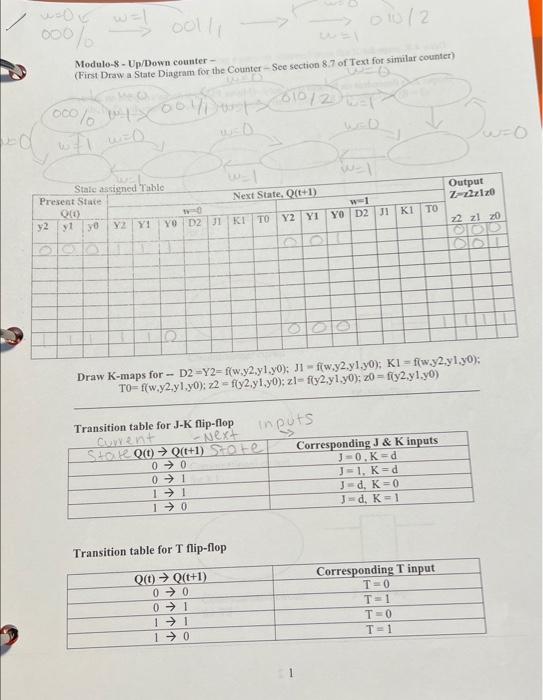 w=0 w=1 w=0
000/0 001/1 w=1 010/2
Modulo-8 - Up/Down counter -
(First Draw a State Diagram for the Counter – See section 8.7 of Text for similar counter)
w=0 w=0
000/0 w=1 001/1 w=1 010/2 w=1
w=0 w=1 w=0 w=0 w=0 w=0
w=1 w=1 w=1
State assigned Table
Present State Q(t) Next State, Q(t+1) Output Z=z2z1z0
w=0 w=1
y2 y1 y0 Y2 Y1 Y0 D2 J1 K1 T0 Y2 Y1 Y0 D2 J1 K1 T0 z2 z1 z0
0 0 0 1 1 1 0 0 1 0 0 0
0 0 1
1 1 1 1 1 0 0 0 0 1 1 1
Draw K-maps for -- D2 =Y2= f(w,y2,y1,y0); J1 = f(w,y2,y1,y0); K1 = f(w,y2,y1,y0);
T0= f(w,y2,y1,y0); z2 = f(y2,y1,y0); z1= f(y2,y1,y0); z0 = f(y2,y1,y0)
Transition table for J-K flip-flop inputs
Current - Next
State Q(t) → Q(t+1) State Corresponding J & K inputs
0 → 0 J = 0, K = d
0 → 1 J = 1, K = d
1 → 1 J = d, K = 0
1 → 0 J = d, K = 1
Transition table for T flip-flop
Q(t) → Q(t+1) Corresponding T input
0 → 0 T = 0
0 → 1 T = 1
1 → 1 T = 0
1 → 0 T = 1
1